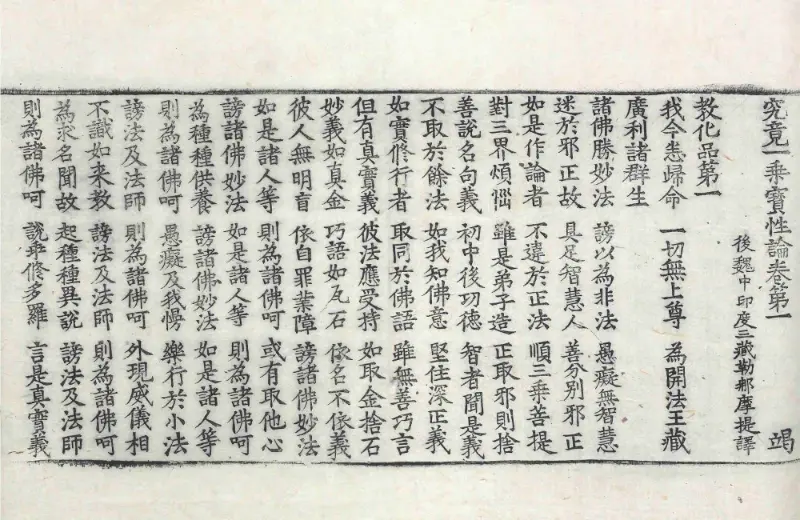 究竟一乘寶性論卷第一 竭
後魏中印度三藏勒那摩提譯
教化品第一
我今悉歸命 一切無上尊 為開法王藏
廣利諸群生
諸佛勝妙法 謗以為非法 愚癡無智慧
迷於邪正故 具足智慧人 善分別邪正
如是作論者 不違於正法 順三乘菩提
對三界煩惱 雖是弟子造 正取邪則捨
善說名句義 初中後功德 智者聞是義
不取於餘法 如我知佛意 堅住深正義
如實修行者 取同於佛語 雖無善巧言
但有真實義 彼法應受持 如取金捨石
妙義如真金 巧語如瓦石 依名不依義
彼人無明盲 依自罪業障 謗諸佛妙法
如是諸人等 則為諸佛呵 或有取他心
謗諸佛妙法 如是諸人等 則為諸佛呵
為種種供養 謗諸佛妙法 如是諸人等
則為諸佛呵 愚癡及我慢 樂行於小法
謗法及法師 則為諸佛呵 外現威儀相
不識如来教 謗法及法師 則為諸佛呵
為求名聞故 起種種異說 謗法及法師
則為諸佛呵 說乖修多羅 言是真實義